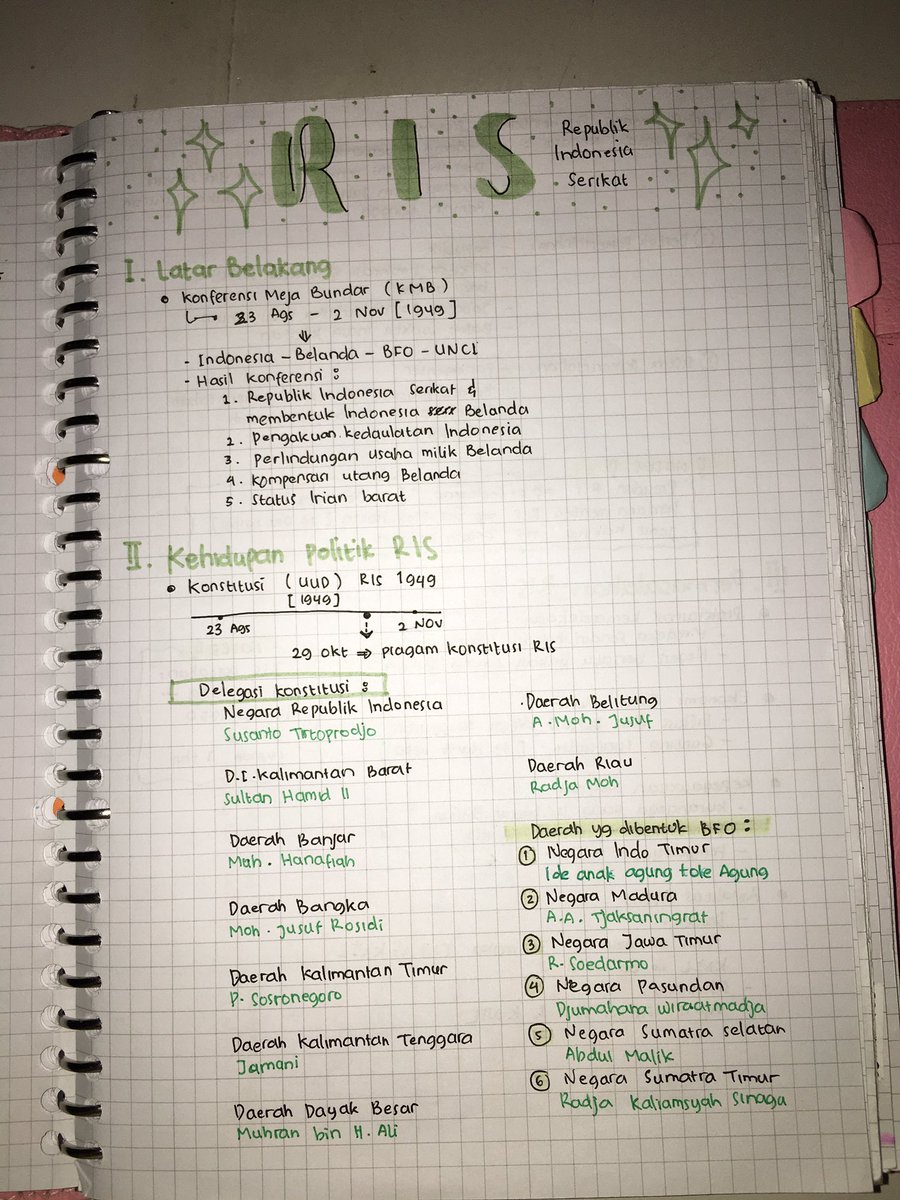 RIS
Republik
Indonesia
Serikat
I. Latar Belakang
• Konferensi Meja Bundar (KMB)
↳ 23 Ags - 2 Nov [1949]
⇓
- Indonesia - Belanda - BFO - UNCI
- Hasil konferensi :
1. Republik Indonesia Serikat &
membentuk Indonesia Belanda
2. Pengakuan kedaulatan Indonesia
3. Perlindungan usaha milik Belanda
4. Kompensasi utang Belanda
5. Status Irian barat
II. Kehidupan Politik RIS
• Konstitusi (UUD) RIS 1949
[1949]
23 Ags 2 NOV
29 okt ⇒ piagam konstitusi RIS
Delegasi konstitusi :
Negara Republik Indonesia
Susanto Tirtoprodjo
D.I. Kalimantan Barat
Sultan Hamid II
Daerah Banjar
Moh. Hanafiah
Daerah Bangka
Moh. Jusuf Rosidi
Daerah Kalimantan Timur
P. Sosronegoro
Daerah Kalimantan Tenggara
Jamani
Daerah Dayak Besar
Muhran bin H. Ali
· Daerah Belitung
A. Moh. Jusuf
Daerah Riau
Radja Moh
Daerah yg dibentuk BFO :
① Negara Indo Timur
Ide anak agung tole Agung
② Negara Madura
A.A. Tjaksaningrat
③ Negara Jawa Timur
R. Soedarmo
④ Negara Pasundan
Djumahana wiraatmadja
⑤ Negara Sumatra selatan
Abdul Malik
⑥ Negara Sumatra Timur
Radja Kaliamsyah Sinaga